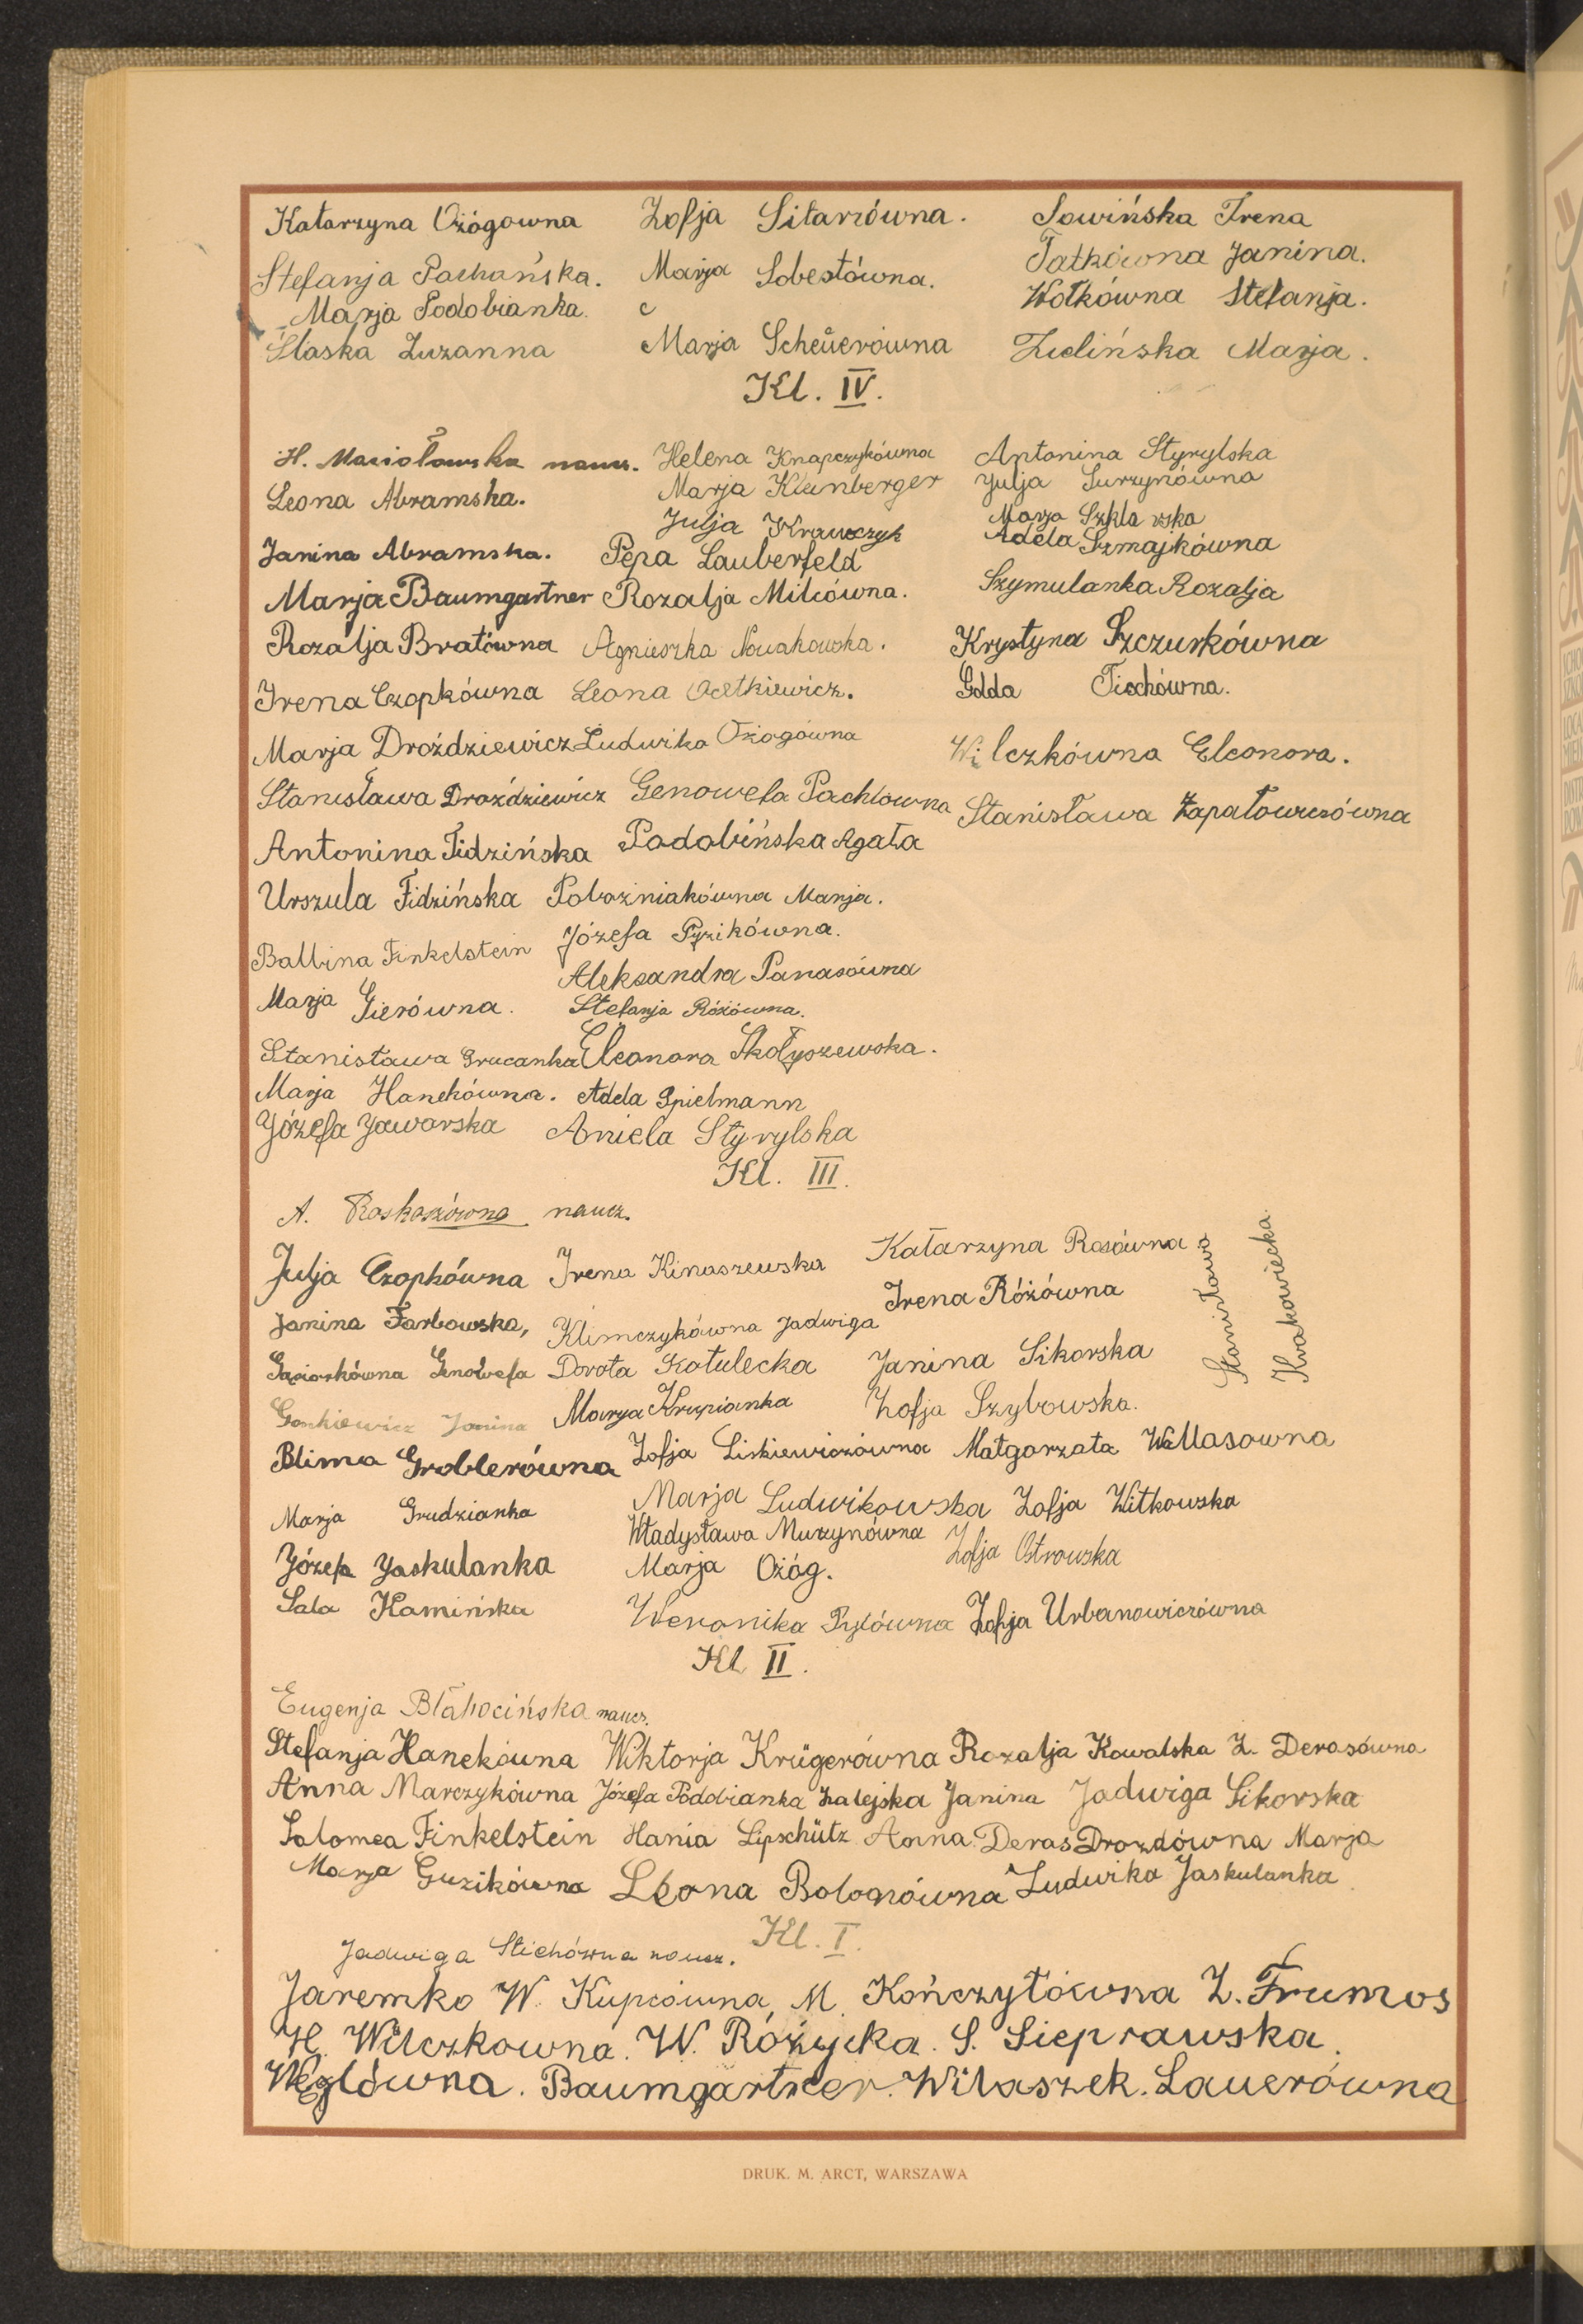 Katarzyna Ożógowna Zofja Sitarzówna. Sowińska Irena
Stefanja Pachańska. Marja Sobestówna. Tatkówna Janina.
Marja Podobianka. c Wołkówna Stefanja.
Ślaska Zuzanna Marja Scheüerówna Zielińska Marja.
Kl. IV.
H. Maciołowska naucz. Helena Knapczykówna Antonina Styrylska
Leona Abramska. Marja Kleinberger Julja Surzynówna
Julja Krawczyk Marja Szklarska
Janina Abramska. Pepa Lauberfeld Adela Szmajkówna
Marja Baumgartner Rozalja Milcówna. Szymulanka Rozalja
Rozalja Bratówna Agnieszka Nowakowska. Krystyna Szczurkówna
Irena Czopkówna Leona Ocetkiewicz. Golda Tiechówna.
Marja Droździewicz Ludwika Ożogówna Wilczkówna Eleonora.
Stanisława Droździewicz Genowefa Pachlowna Stanisława Zapatowiczówna
Antonina Fidzińska Podobińska Agata
Urszula Fidzińska Poboźniakówna Marja.
Balbina Finkelstein Józefa Pyzikówna.
Aleksandra Panasówna
Marja Gierówna. Stefanja Różówna.
Stanisława Grucanka Eleonora Skołyszewska.
Marja Hanekówna. Adela Spielmann
Józefa Jaworska Aniela Styrylska
Kl. III.
A. Roskoszówna naucz.
Julja Czopkówna Irena Kinaszewska Katarzyna Rosówna
Janina Farbowska, Klimczykówna Jadwiga Irena Różówna
Gąsiorkówna Genowefa Dorota Kotulecka Janina Sikorska
Stanisława Krakowiecka.
Gonkiewicz Janina Marya Krupianka Zofja Szybowska.
Blima Groblerówna Zofja Liskiewiczówna Małgorzata Wallasowna
Marja Grudzianka Marja Ludwikowska Zofja Witkowska
Władysława Murzynówna
Józefa Jaskulanka Marja Ożóg. Zofja Ostrowska
Sala Kamińska Weronika Pyłówna Zofja Urbanowiczówna
Kl II.
Eugenja Błahocińska naucz.
Stefanja Hanekówna Wiktorja Krügerówna Rozalja Kowalska Z. Derasówna
Anna Marczykówna Józefa Podobianka Zalejska Janina Jadwiga Sikorska
Salomea Finkelstein Hania Lipschütz Anna Deras Drozdówna Marja
Marja Guzikówna Leona Bolonówna Ludwika Jaskulanka
Kl. I.
Jadwiga Stichówna naucz.
Jaremko W. Kupcówna, M. Kończytówna Z. Frumos
H. Wilczkowna. W. Różycka. S. Sieprawska.
Węglówna. Baumgartner. Witaszek. Lauerówna
DRUK. M. ARCT, WARSZAWA